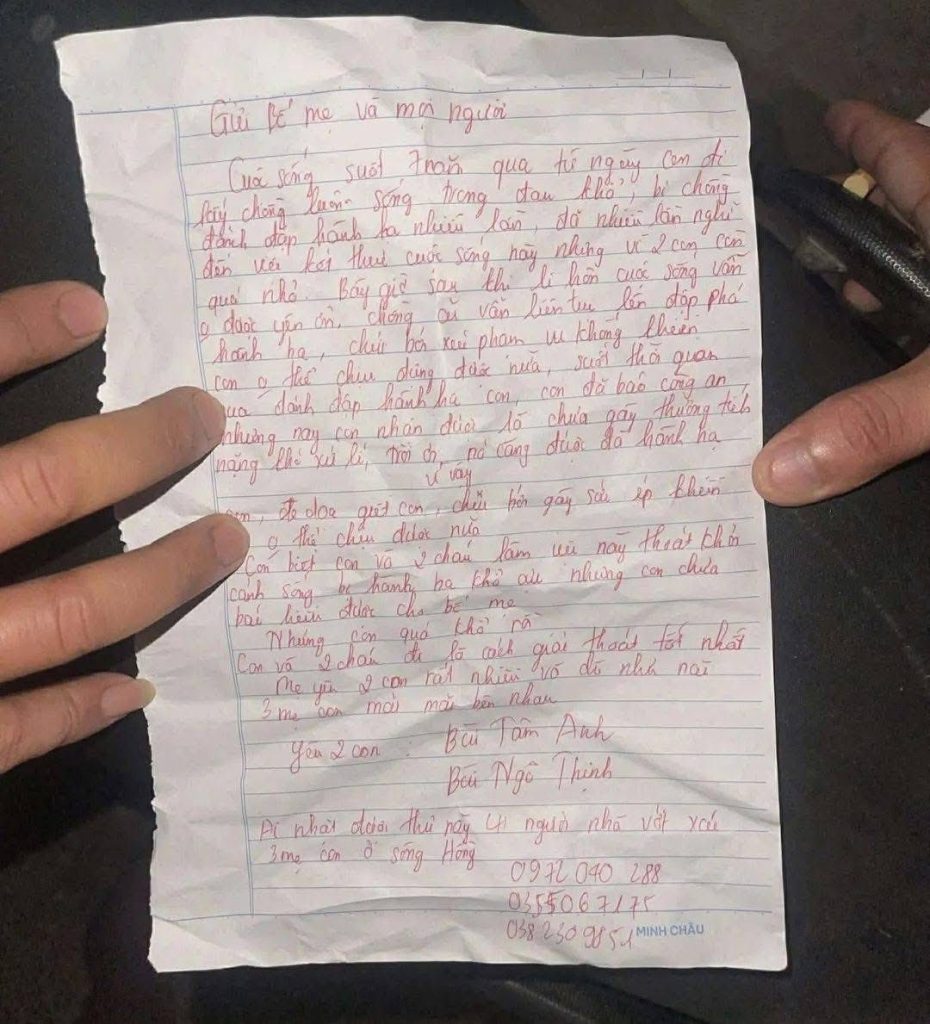 Gửi bố mẹ và mọi người
Cuộc sống suốt 7 năm qua từ ngày con đi
lấy chồng luôn sống trong đau khổ, bị chồng
đánh đập hành hạ nhiều lần, đã nhiều lần nghĩ
đến với kết thúc cuộc sống này nhưng vì 2 con còn
quá nhỏ. Bây giờ sau khi li hôn cuộc sống vẫn
o được yên ổn, chồng cũ vẫn liên tục đập phá
hành hạ, chửi bới xúc phạm vu khống khiến
con o thể chịu đựng được nữa, suốt thời gian
qua đánh đập hành hạ con, con đã báo công an
nhưng nay con nhận được là chưa gây thương tích
nặng khó xử lí, trời ơi, nó càng được đà hành hạ
vì vậy
con, đe dọa giết con, chửi bới gây sức ép khiến
o thể chịu được nữa
Con biết con và 2 cháu làm việc này thoát khỏi
cảnh sống bị hành hạ khổ ải nhưng con chưa
báo hiếu được cho bố mẹ
Nhưng con quá khổ rồi
Con và 2 cháu đi là cách giải thoát tốt nhất
Mẹ yêu 2 con rất nhiều và dù như nào
3 mẹ con mãi mãi bên nhau
Yêu 2 con : Bùi Tâm Anh
Bùi Ngô Thịnh
Ai nhặt được thư này người nhà vớt xác
3 mẹ con ở sông Hồng
0972 040 288
0355067175
038 230 9851
MINH CHÂU